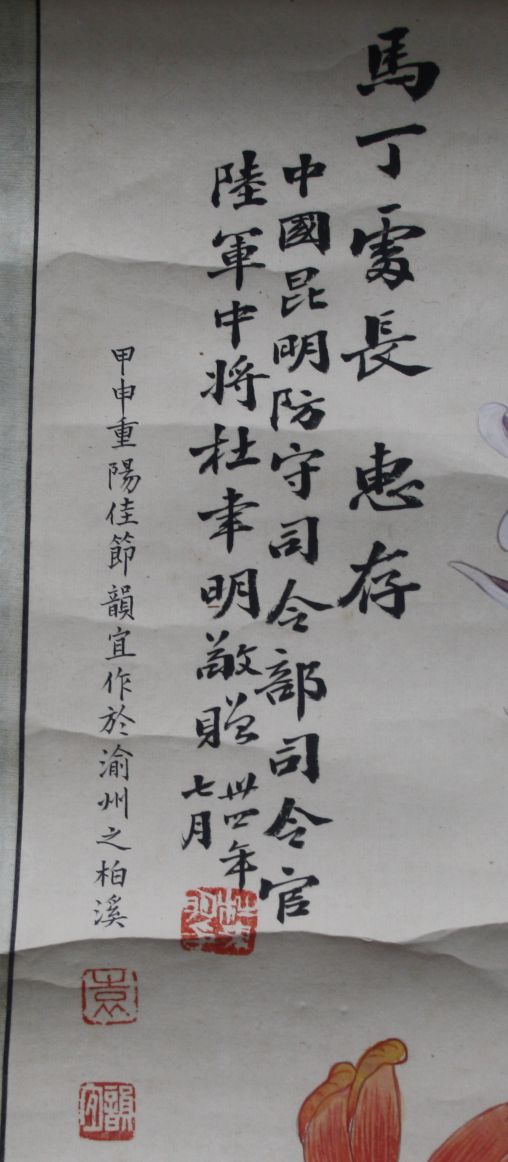 馬丁處長 惠存
中國昆明防守司令部司令官
陸軍中將杜聿明敬贈 卅四年
七月
甲申重陽佳節韻宜作於渝州之柏溪
袁
韻宜